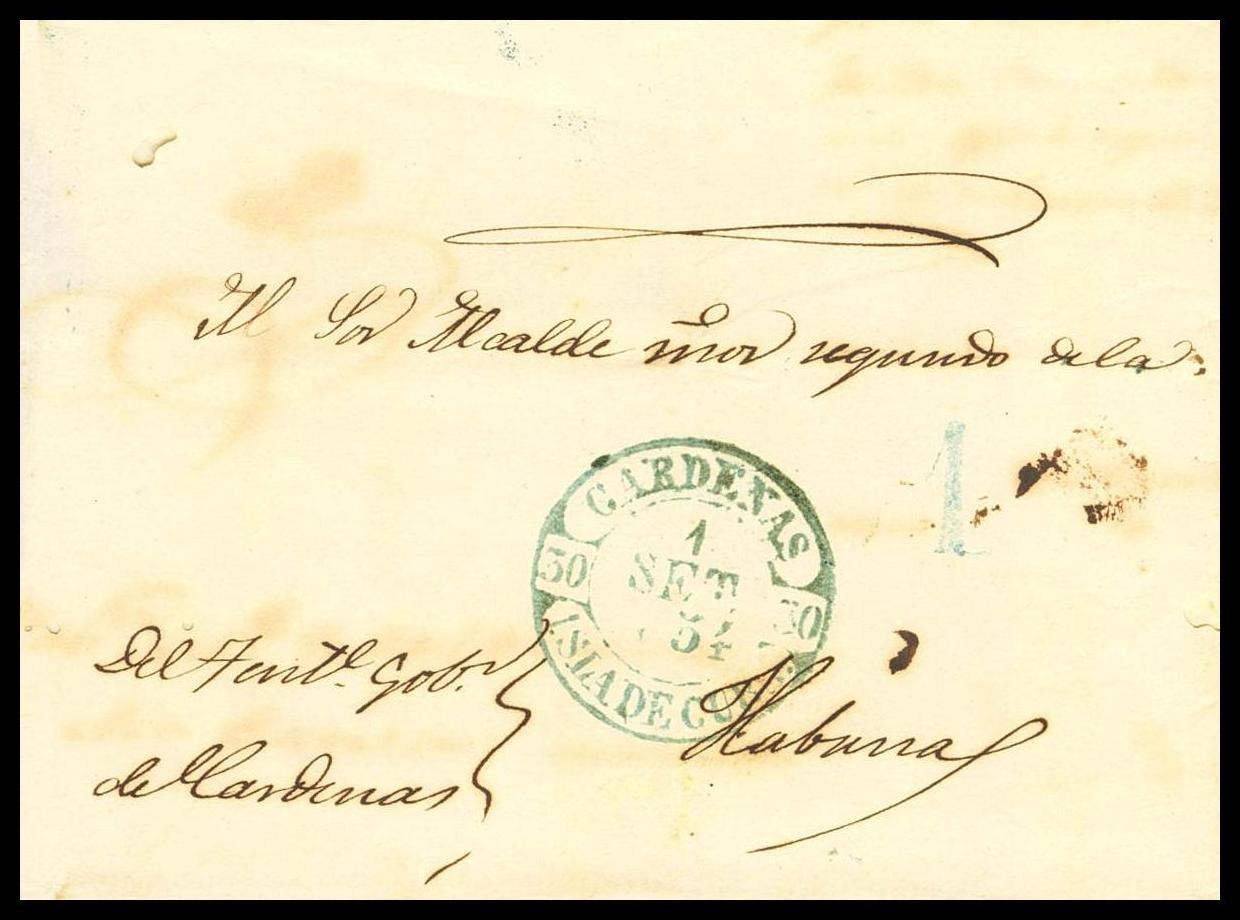 Al Sor Alcalde mor segundo dela
1
CARDENAS
1
SET
54
30 30
ISLA DE CUBA
Del Tente. Gobr.
de Cardenas
Habana